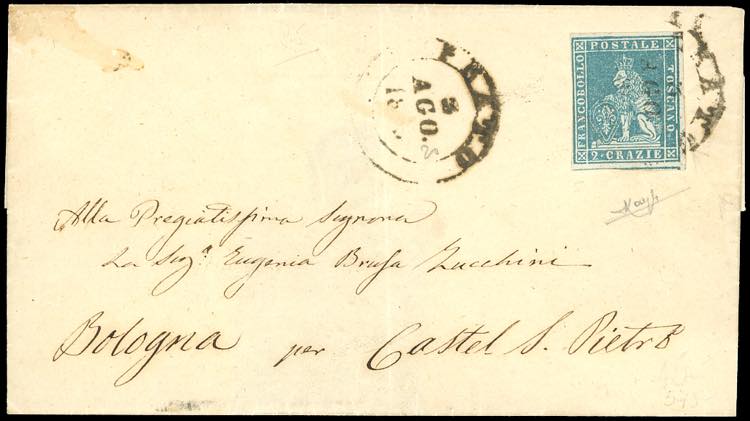 PRATO
3
AGO.
18
FRANCOBOLLO
POSTALE
TOSCANO
2·CRAZIE
PRATO
AGO
Alla Pregiatissima Signora
La Sig.ª Eugenia Brusa Zucchini
Bologna per Castel S. Pietro